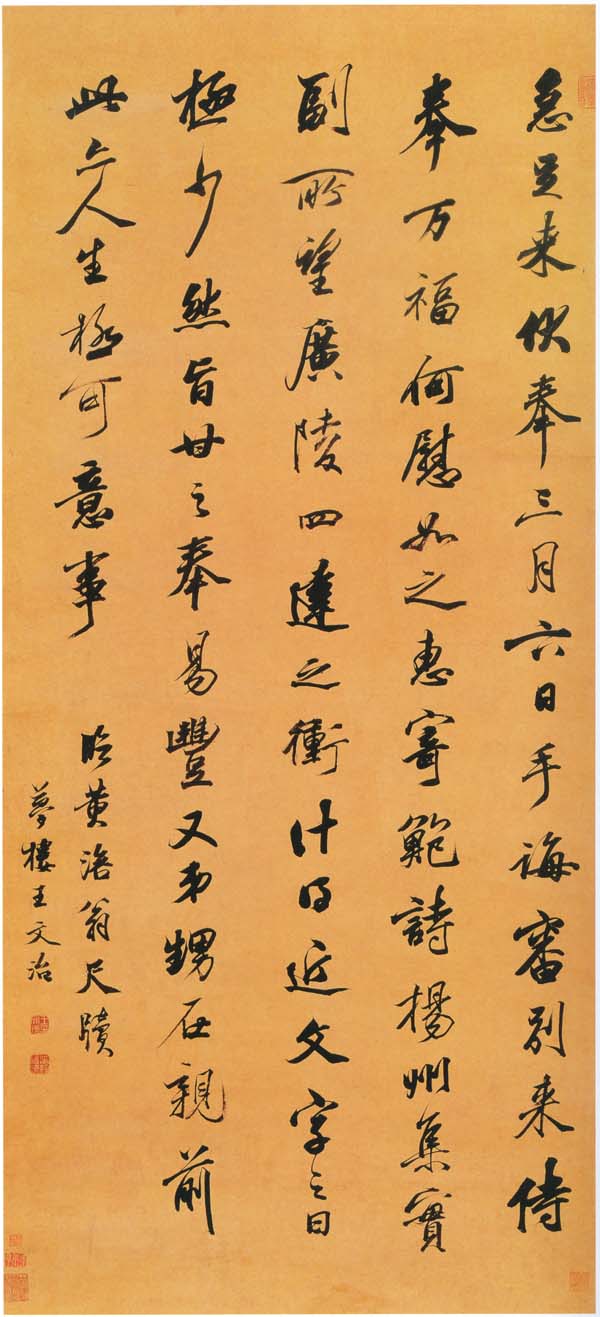 急足来伏奉三月六日手誨審别来侍
奉万福何慰如之惠寄鮑詩揚州集實
副所望廣陵四達之衝計日近文字之日
極少然旨甘之奉易豐又弟甥在親前
此亦人生極可意事
臨黄涪翁尺牘
夢樓王文治